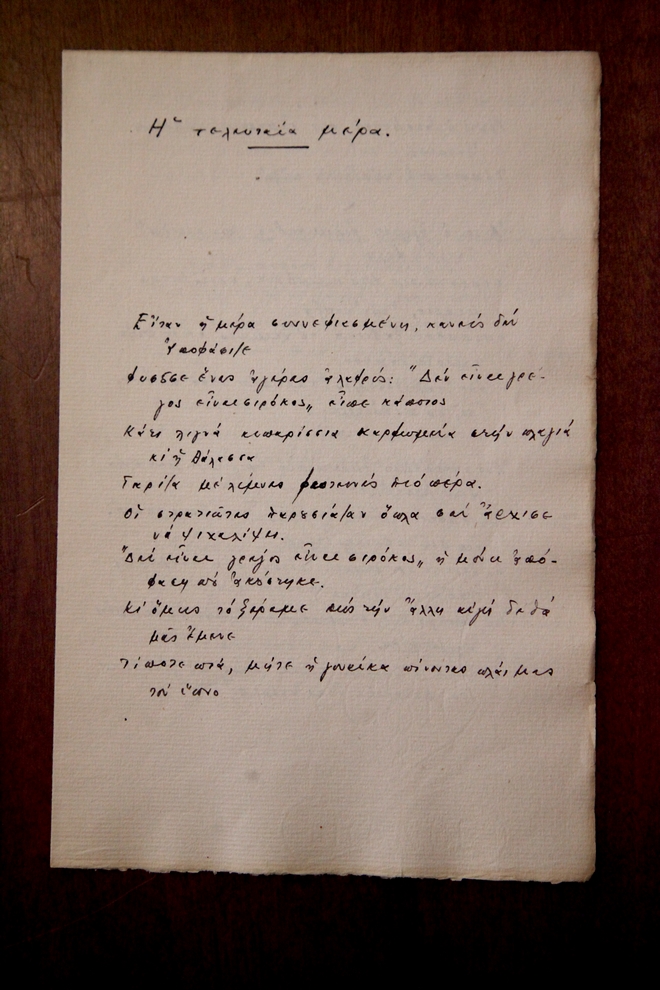 Ἡ τελευταία μέρα.
Εἴταν ἡ μέρα συννεφιασμένη, κανείς δέν
ἀποφάσιζε
φυσοῦσε ἕνας ἀγέρας ἀλαφρύς: "Δέν εἶναι γρέ-
γος εἶναι σιρόκος" εἶπε κάποιος
Κάτι λιγνά κυπαρίσσια καρφωμένα στήν πλαγιά
κι ἡ θάλασσα
γκρίζα μέ λίμνες φωτεινές πιό πέρα.
Οἱ στρατιῶτες παρουσίαζαν ὅπλα σάν ἄρχισε
νά ψιχαλίζει.
"Δέν εἶναι γρέγος εἶναι σιρόκος" ἡ μόνη ἀπό-
φαση πού ἀκούστηκε.
Κι ὅμως τό ξέραμε πώς τήν ἄλλη αὐγή δέ θά
μᾶς ἔμενε
τίποτε πιά, μήτε ἡ γυναίκα πίνοντας πλάι μας
τόν ὕπνο